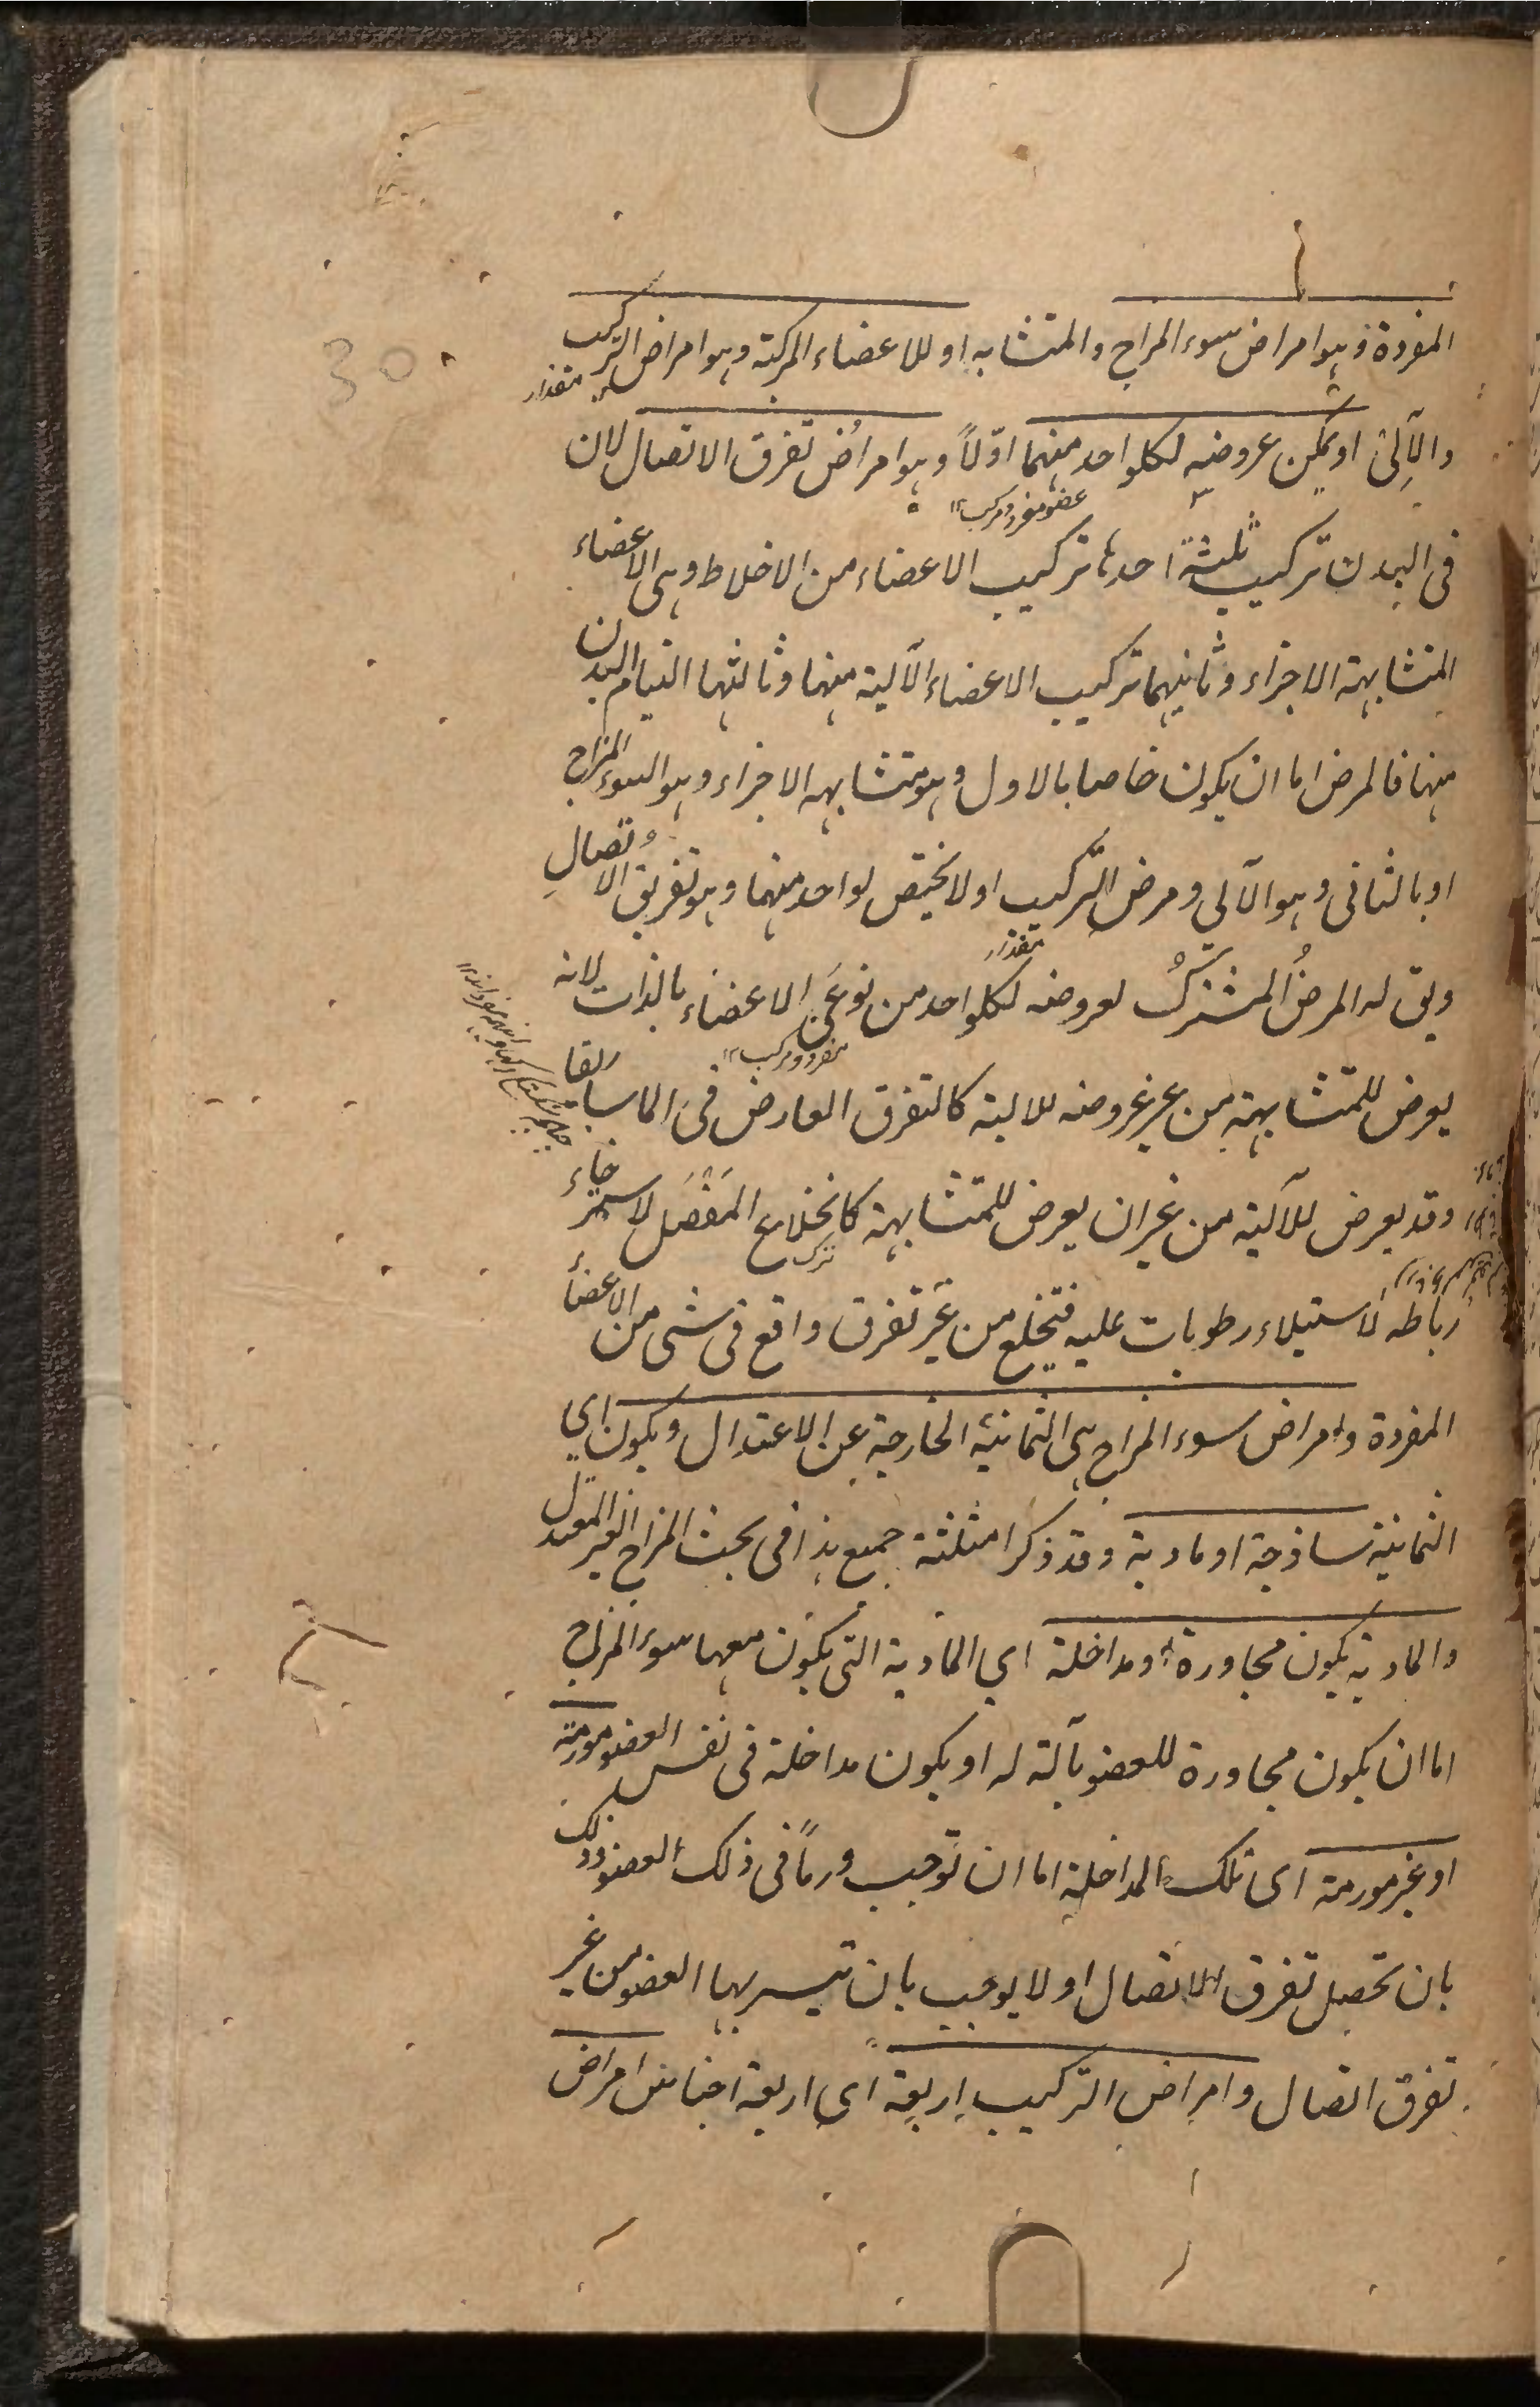 المفردة وهو امراض سوء المزاج والمتشابه او للاعضاء المركبة وهو امراض التركيب
والآلى او يمكن عروضه لكلواحد منهما اوّلاً وهو امراض تفرق الاتصال لان
عضو مفرد ومركب ١٢
فى البدن تركيب ثلثة احدها تركيب الاعضاء من الاخلاط وهى الاعضاء
المتشابهة الاجزاء وثانيهما تركيب الاعضاء الآلية منها وثالثها التيام البدن
منها فالمرض اما ان يكون خاصا بالاول وهو متشابهه الاجزاء وهو السوء المزاج
او بالثانى وهو الآلى ومرض التركيب او لا يختص لواحد منهما وهو تفريق الاتصال
ويق له المرض المشترك لعروضه لكلواحد من نوعى الاعضاء بالذات لانه
مفرد ومركب ١٢
يعرض للمتشابهة من غير عروضه للالية كالتفرق العارض فى الماساريقا
وقد يعرض للآلية من غير ان يعرض للمتشابهة كانخلاع المَفْصَل لاسترخاء
رباطه لاستيلاء رطوبات عليه فتخلع من غير تفرق واقع فى شى من الاعضاء
المفردة وامراض سوء المزاج هى الثمانية الخارجة عن الاعتدال ويكون اي
الثمانية ساذجة او مادية وقد ذكر امثلثة جميع هذا فى بحث المزاج الغير المعتدل
والمادية يكون مجاورة او مداخلة اي المادية التى يكون معها سوء المزاج
اما ان يكون مجاورة للعضو بآلة له او يكون مداخلة فى نفس العضو مورمة
او غير مورمة اى تلك المداخلة اما ان توجب ورماً فى ذلك العضو وذلك
بان تحصل تفرق الاتصال او لا يوجب بان تيسر بها العضو من غير
تفرق اتصال وامراض التركيب اربعة اى اربعة اجناس امراض
30